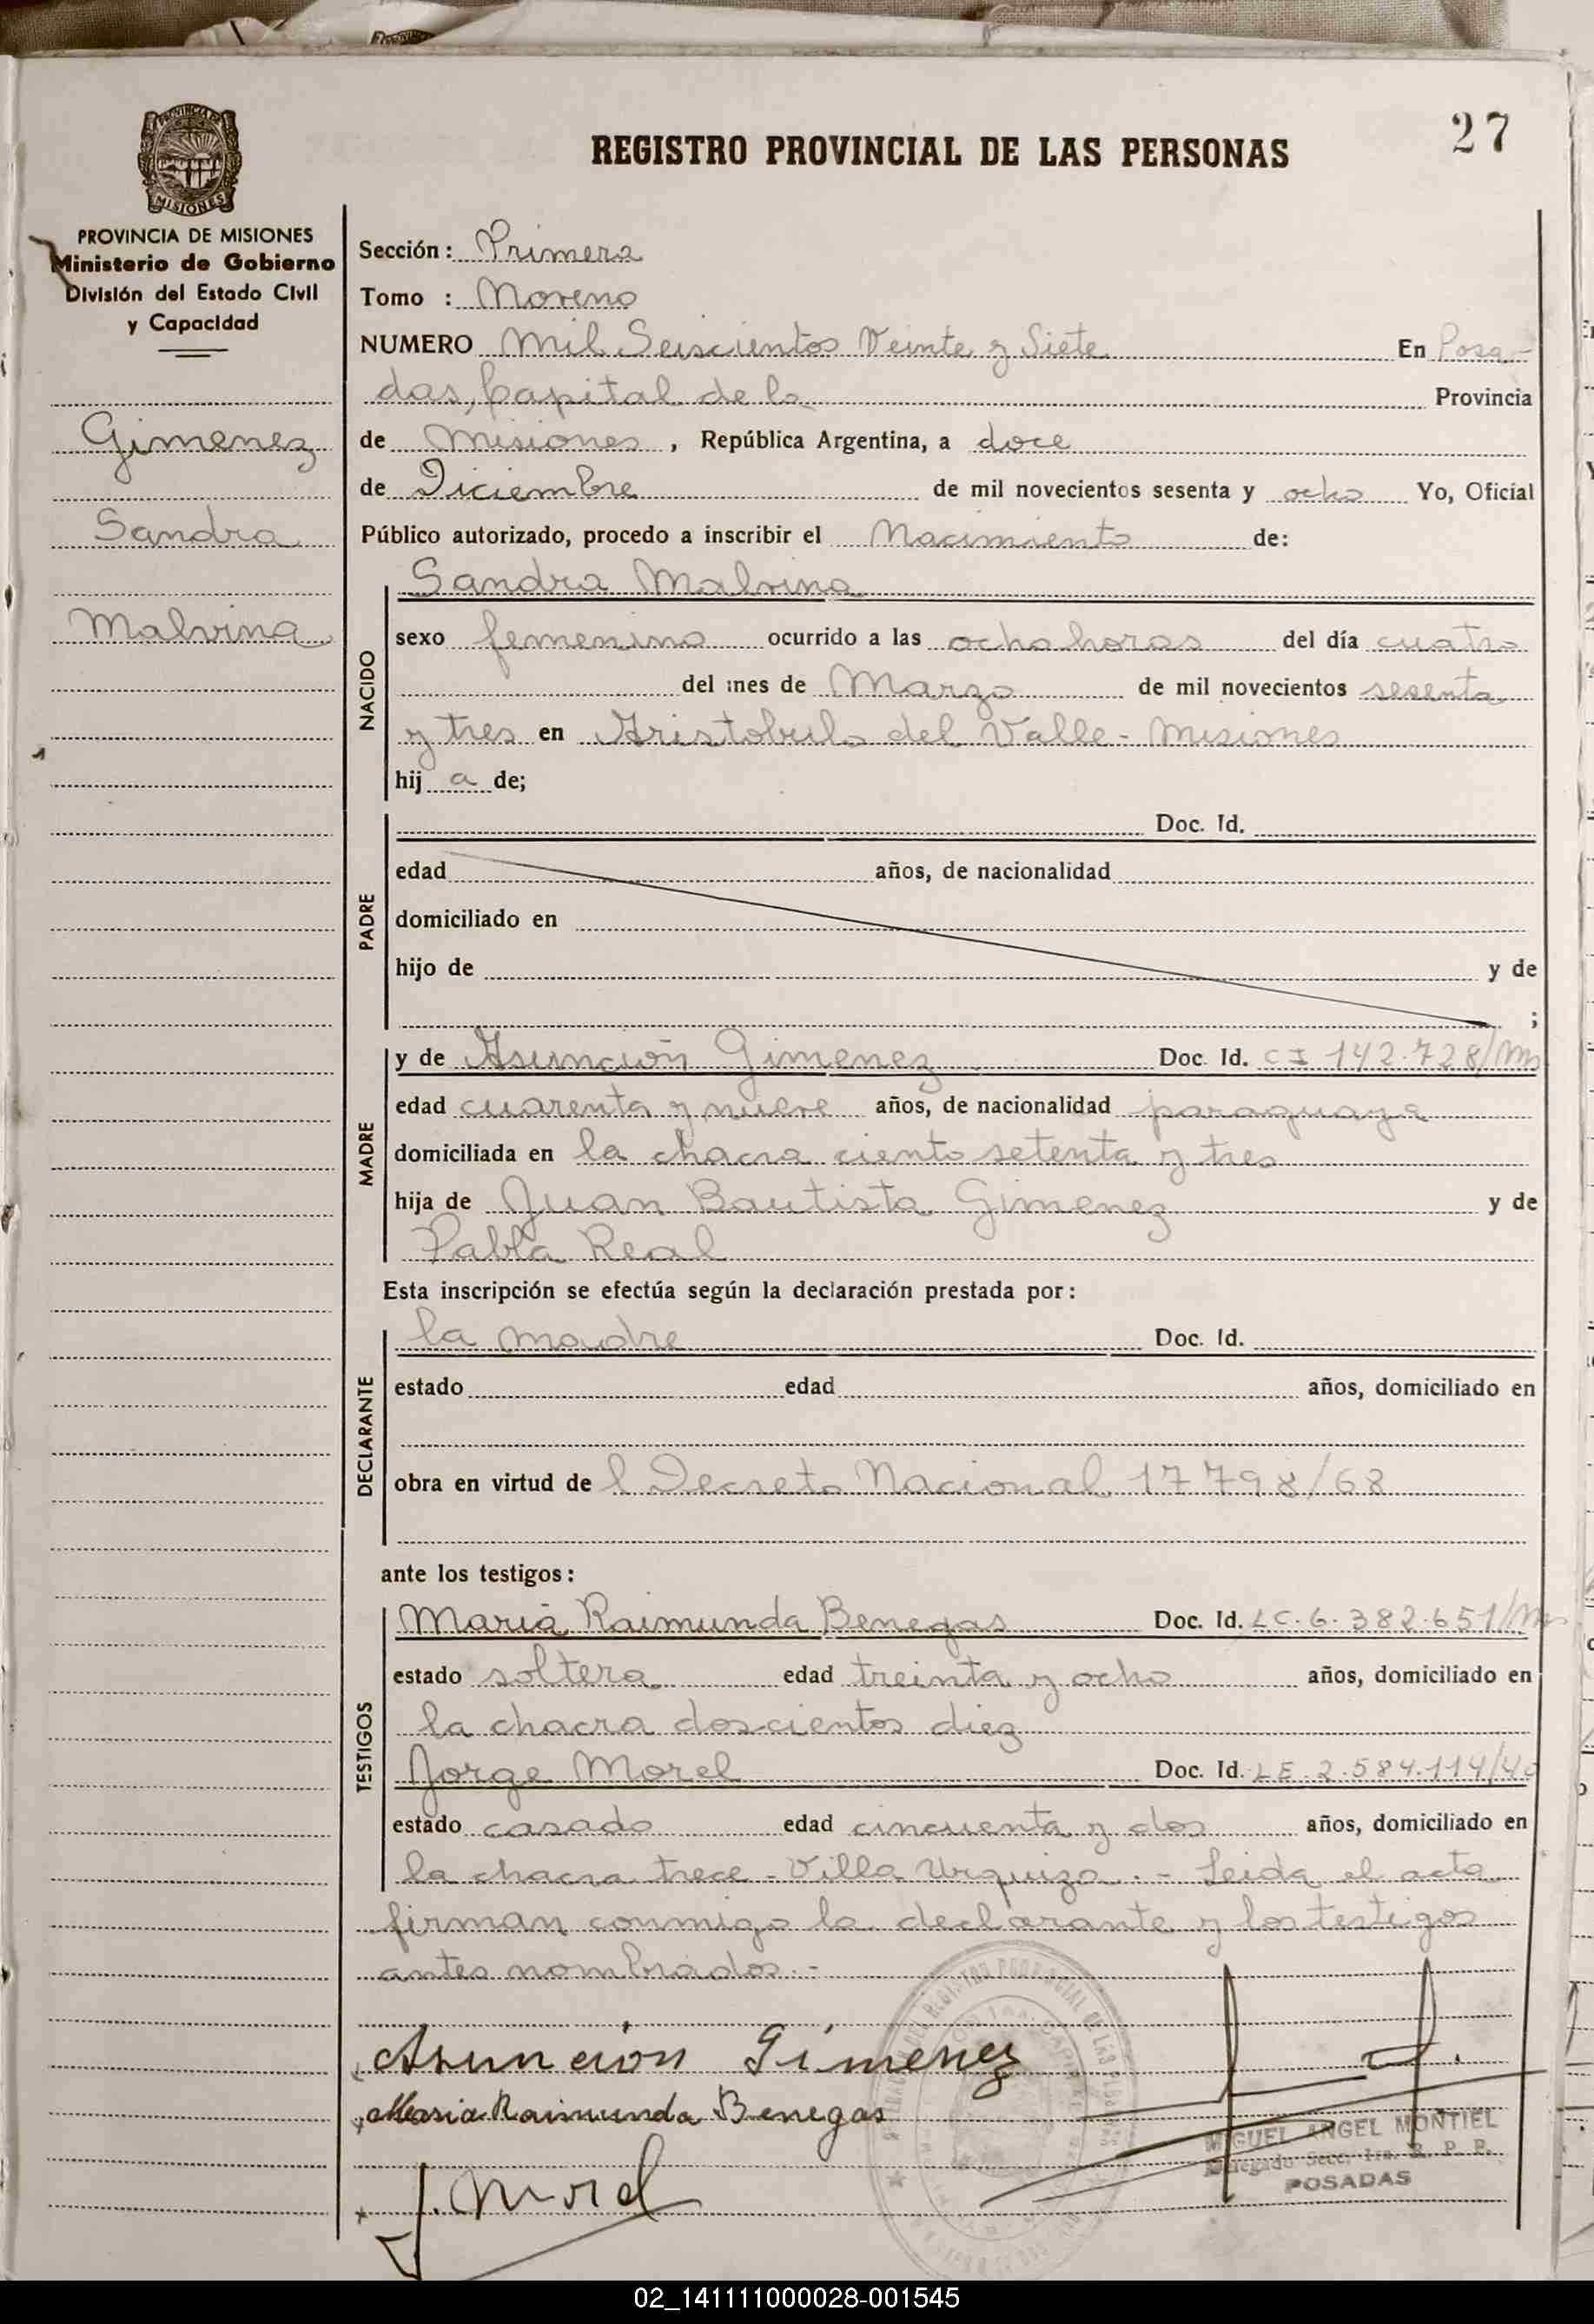 27
REGISTRO PROVINCIAL DE LAS PERSONAS
PROVINCIA DE MISIONES
Ministerio de Gobierno
División del Estado Civil
y Capacidad
Gimenez
Sandra
Malvina
Sección: Primera
Tomo : Moreno
NUMERO Mil Seiscientos Veinte y Siete En Posa-
das, Capital de la Provincia
de Misiones, República Argentina, a doce
de Diciembre de mil novecientos sesenta y ocho Yo, Oficial
Público autorizado, procedo a inscribir el Nacimiento de:
NACIDO
Sandra Malvina
sexo femenino ocurrido a las ocho horas del día cuatro
del mes de Marzo de mil novecientos sesenta
y tres en Aristobulo del Valle - Misiones
hij a de;
PADRE
Doc. Id.
edad años, de nacionalidad
domiciliado en
hijo de y de
;
MADRE
y de Asunción Gimenez Doc. Id. CI 142.728/Mns
edad cuarenta y nueve años, de nacionalidad paraguaya
domiciliada en la chacra ciento setenta y tres
hija de Juan Bautista Gimenez y de
Pabla Real
Esta inscripción se efectúa según la declaración prestada por:
DECLARANTE
la madre Doc. Id.
estado edad años, domiciliado en
obra en virtud de l Decreto Nacional 17798/68
ante los testigos:
TESTIGOS
Maria Raimunda Benegas Doc. Id. LC.6.382.651/
estado soltera edad treinta y ocho años, domiciliado en
la chacra doscientos diez
Jorge Morel Doc. Id. LE.2.584.114/
estado casado edad cincuenta y dos años, domiciliado en
la chacra trece - Villa Urquiza. - Leida el acta
firman conmigo la declarante y los testigos
antes nombrados.-
Asuncion Gimenez
Maria Raimunda Benegas
J. Morel
MIGUEL ANGEL MONTIEL
Delegado Secc. 1ra. R. P. P.
POSADAS
02_141111000028-001545